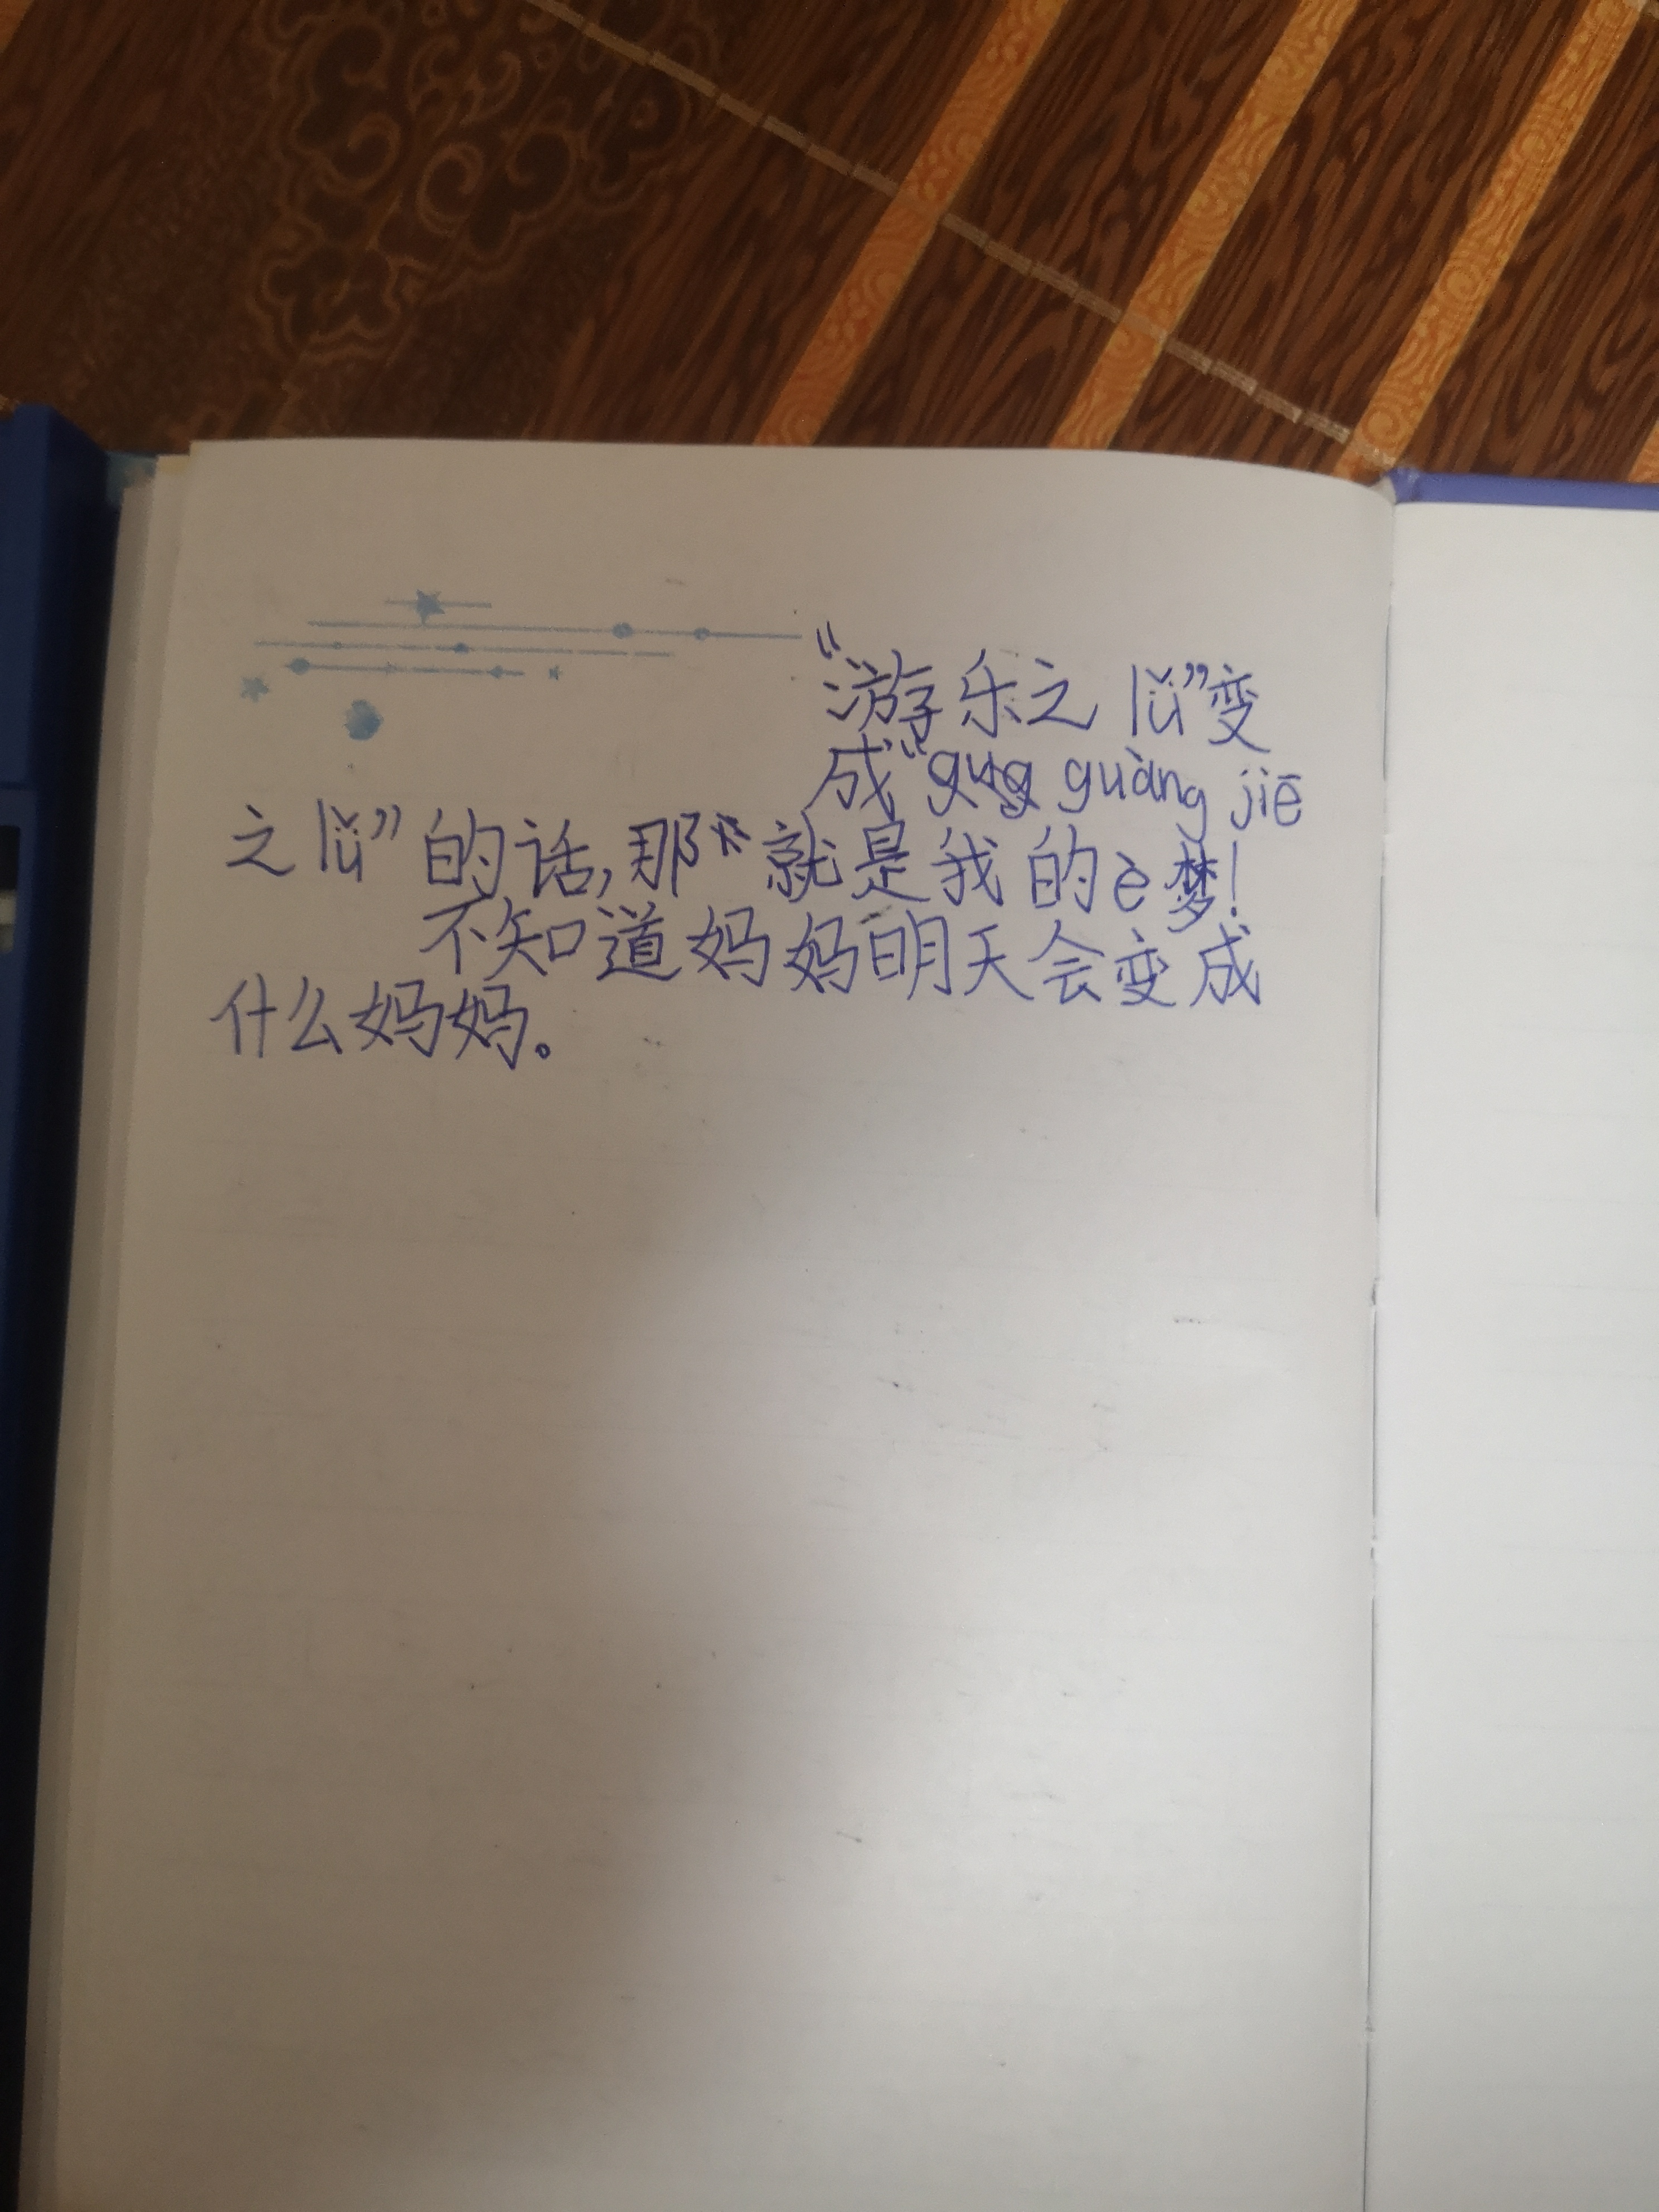 “游乐之lǚ”变
成“guàng jiē
之lǚ”的话,那就是我的è梦!
不知道妈妈明天会变成
什么妈妈。